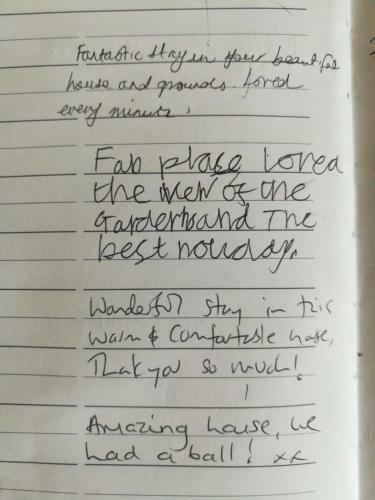 Fantastic stay in your beautiful
house and grounds. Loved
every minute.
Fab place loved
the view of the
Garden and The
best holiday.
Wonderful stay in this
warm & comfortable house,
Thank you so much!
Amazing house, we
had a ball! xx